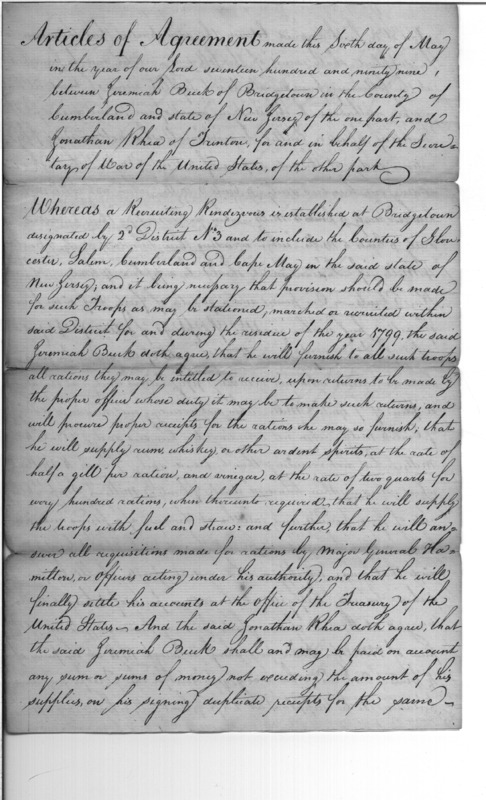 Articles of Agreement made this Sixth day of May
in the year of our Lord seventeen hundred and ninety nine,
between Jeremiah Buck of Bridgetown in the County of
Cumberland and state of New Jersey, of the one part, and
Jonathan Rhea of Trenton, for and in behalf of the Secre-
tary of War of the United States, of the other part
Whereas a Recruiting Rendezvous is established at Bridgetown
designated by 2d District No 3 and to include the Counties of Glou-
cester, Salem, Cumberland and Cape May in the said state of
New Jersey, and it being necessary that provision should be made
for such Troops as may be stationed, marched or recruited within
said District for and during the residue of the year 1799. the said
Jeremiah Buck doth agree, that he will furnish to all such troops
all rations they may be entitled to receive, upon returns to be made by
the proper officer whose duty it may be to make such returns, and
will procure proper receipts for the rations he may so furnish, that
he will supply rum, whiskey, or other ardent spirits, at the rate of
half a gill per ration, and vinegar, at the rate of two quarts for
every hundred rations, when thereunto required, that he will supply
the troops with fuel and straw: and further, that he will an-
swer all requisitions made for rations by Major General Ha-
milton, or officers acting under his authority, and that he will
finally settle his accounts at the office of the Treasury of the
United States. And the said Jonathan Rhea doth agree, that
the said Jeremiah Buck shall and may be paid on account
any sum or sums of money not exceeding the amount of his
supplies, on his signing duplicate receipts for the same